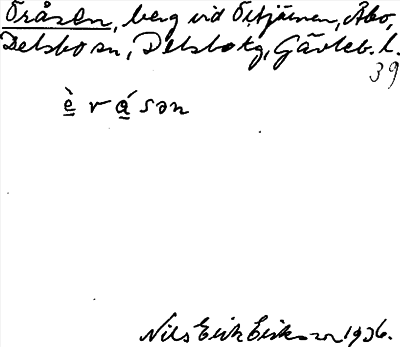 Öråsen, berg vid Öråtjärnen, Åbo,
Delsbo sn, Delsbo tg, Gävleb. l.
39
è r á sən
Nils Erik Eriksson 1936.